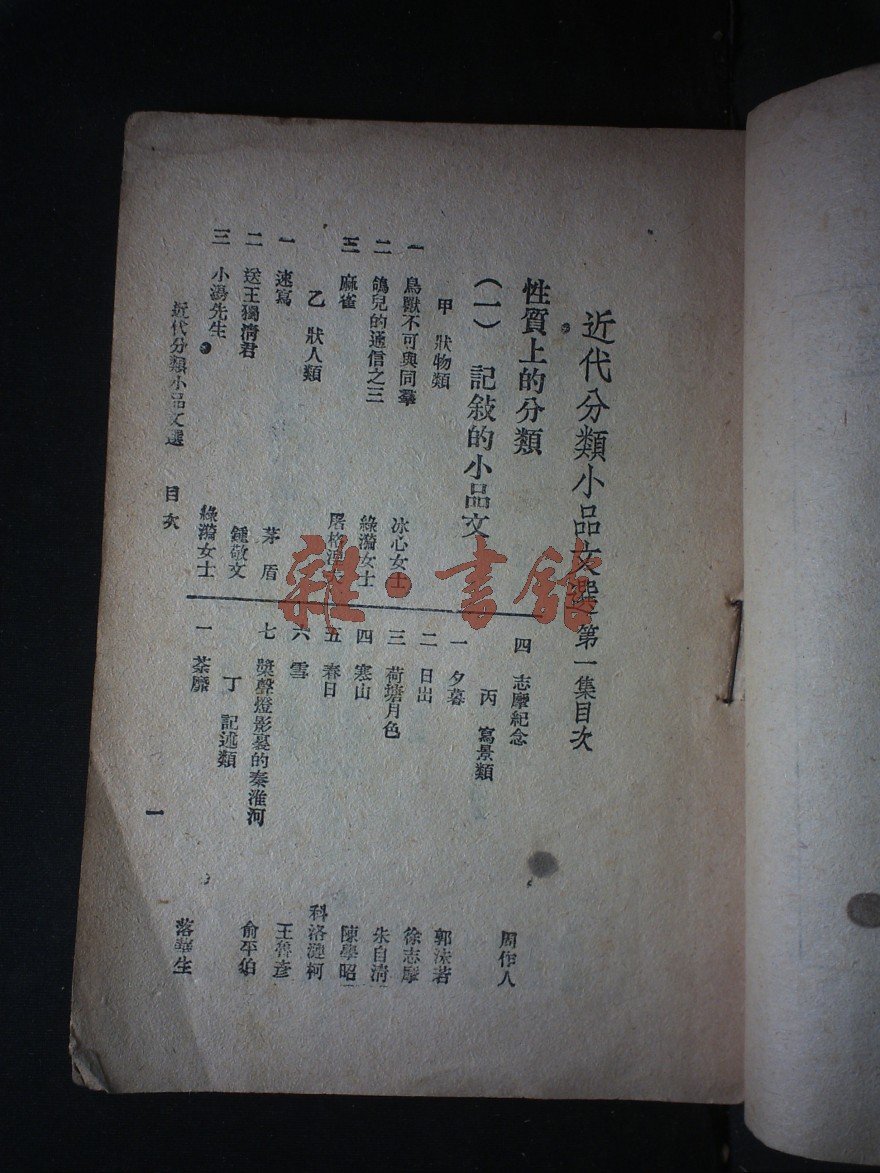 近代分類小品文選 第一集目次
性質上的分類
(一) 記敍的小品文
甲 狀物類
一 鳥獸不可與同羣 冰心女士
二 鴿兒的通信之三 綠漪女士
三 麻雀 屠格涅夫
乙 狀人類
一 速寫 茅盾
二 送王獨清君 鍾敬文
三 小湯先生 綠漪女士
四 志摩紀念 周作人
丙 寫景類
一 夕暮 郭沫若
二 日出 徐志摩
三 荷塘月色 朱自清
四 寒山 陳學昭
五 春日 科洛漣柯
六 雪 王魯彥
七 槳聲燈影裏的秦淮河 俞平伯
丁 記述類
一 荼靡 落華生
近代分類小品文選 目次
一
雜·書館